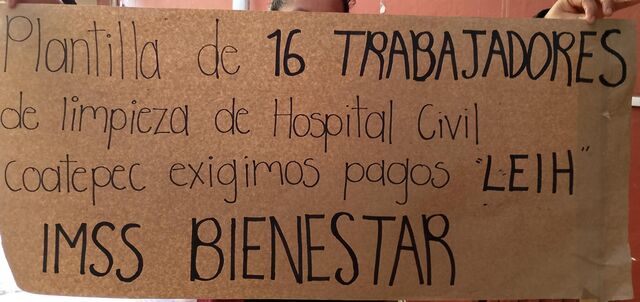 Plantilla de 16 TRABAJADORES
de limpieza de Hospital Civil
Coatepec exigimos pagos "LEIH"
IMSS BIENESTAR